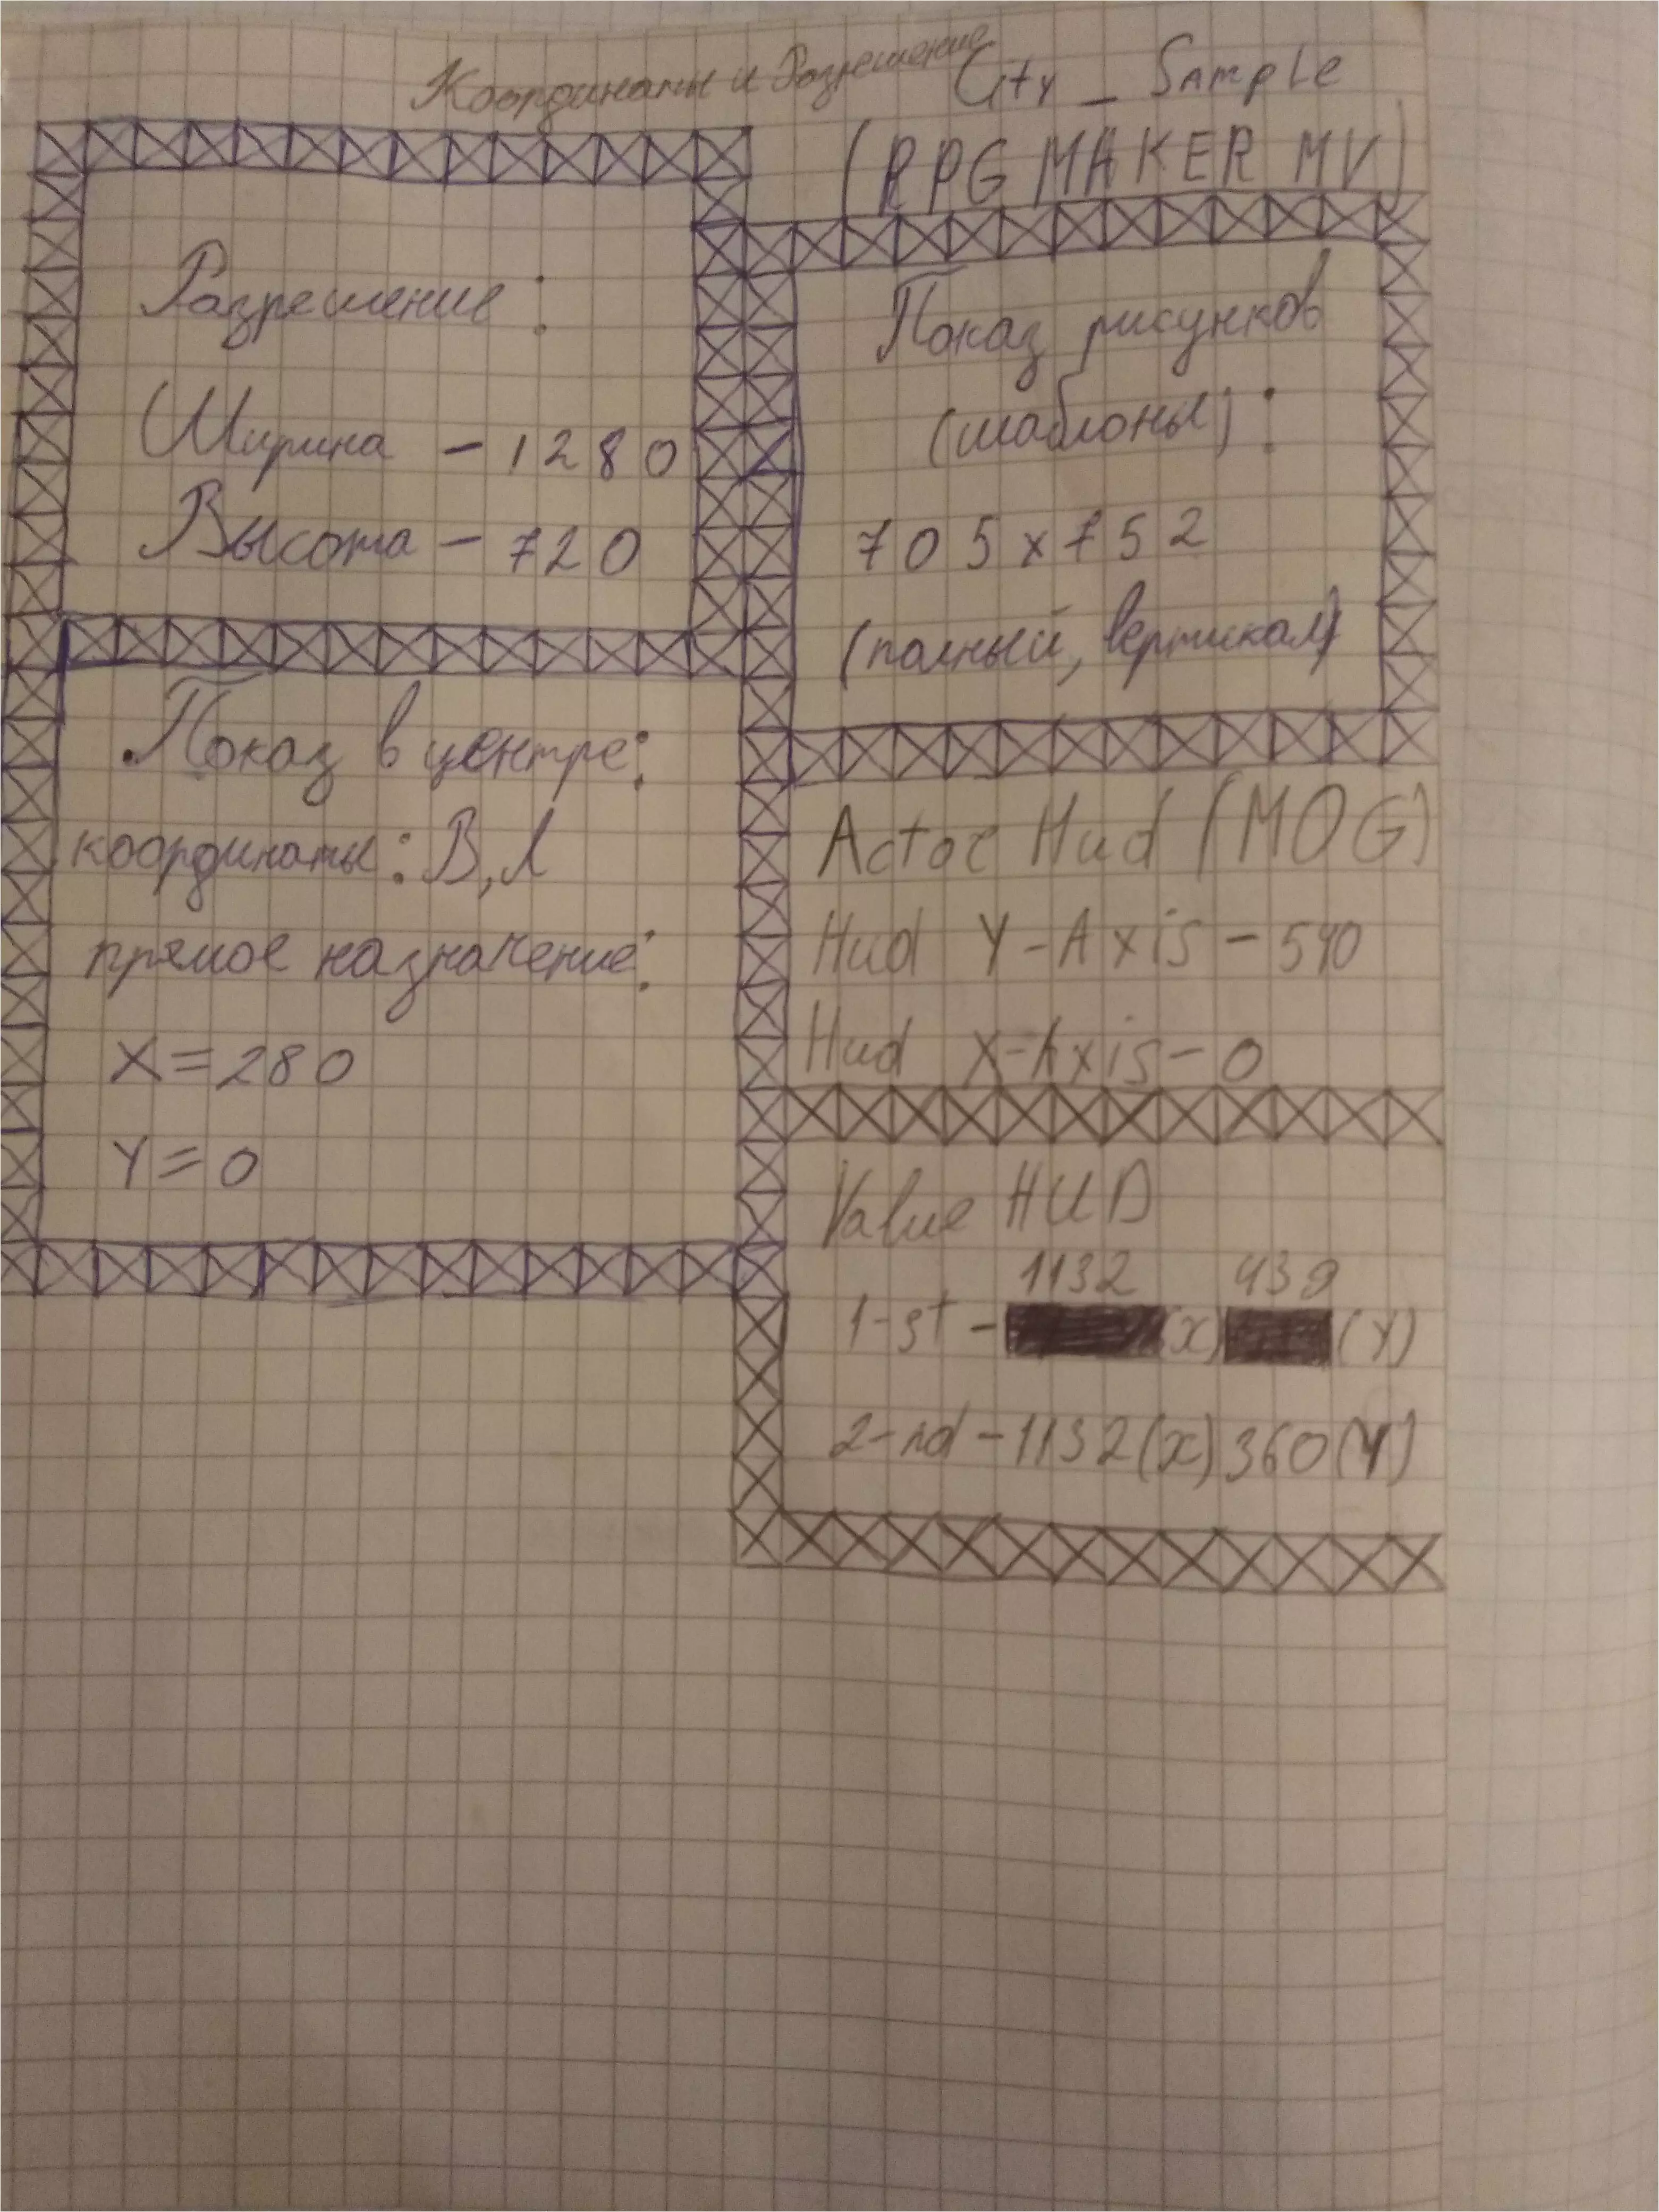 Координаты и Разрешение
City_Sample
(RPG MAKER MV)
Разрешение:
Ширина - 1280
Высота - 720
Показ рисунков
(шаблоны):
705x752
(полный, вертикал)
Показ в центре:
координаты: В, Л
прямое назначение:
X=280
Y=0
Actor Hud (MOG)
Hud Y-Axis - 540
Hud X-Axis - 0
Value HUD
1132 439
1-st - (x) (Y)
2-nd - 1132(x) 360(Y)